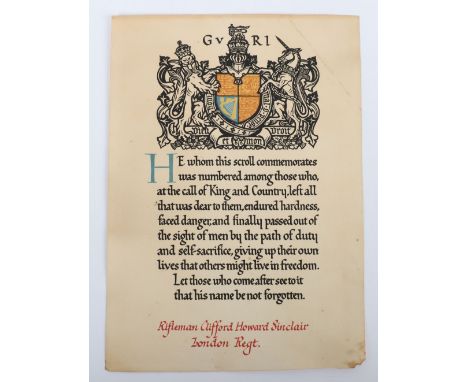 G V R I
Dieu et mon droit
HE whom this scroll commemorates
was numbered among those who,
at the call of King and Country, left all
that was dear to them, endured hardness,
faced danger, and finally passed out of
the sight of men by the path of duty
and self-sacrifice, giving up their own
lives that others might live in freedom.
Let those who come after see to it
that his name be not forgotten.
Rifleman Clifford Howard Sinclair
London Regt.